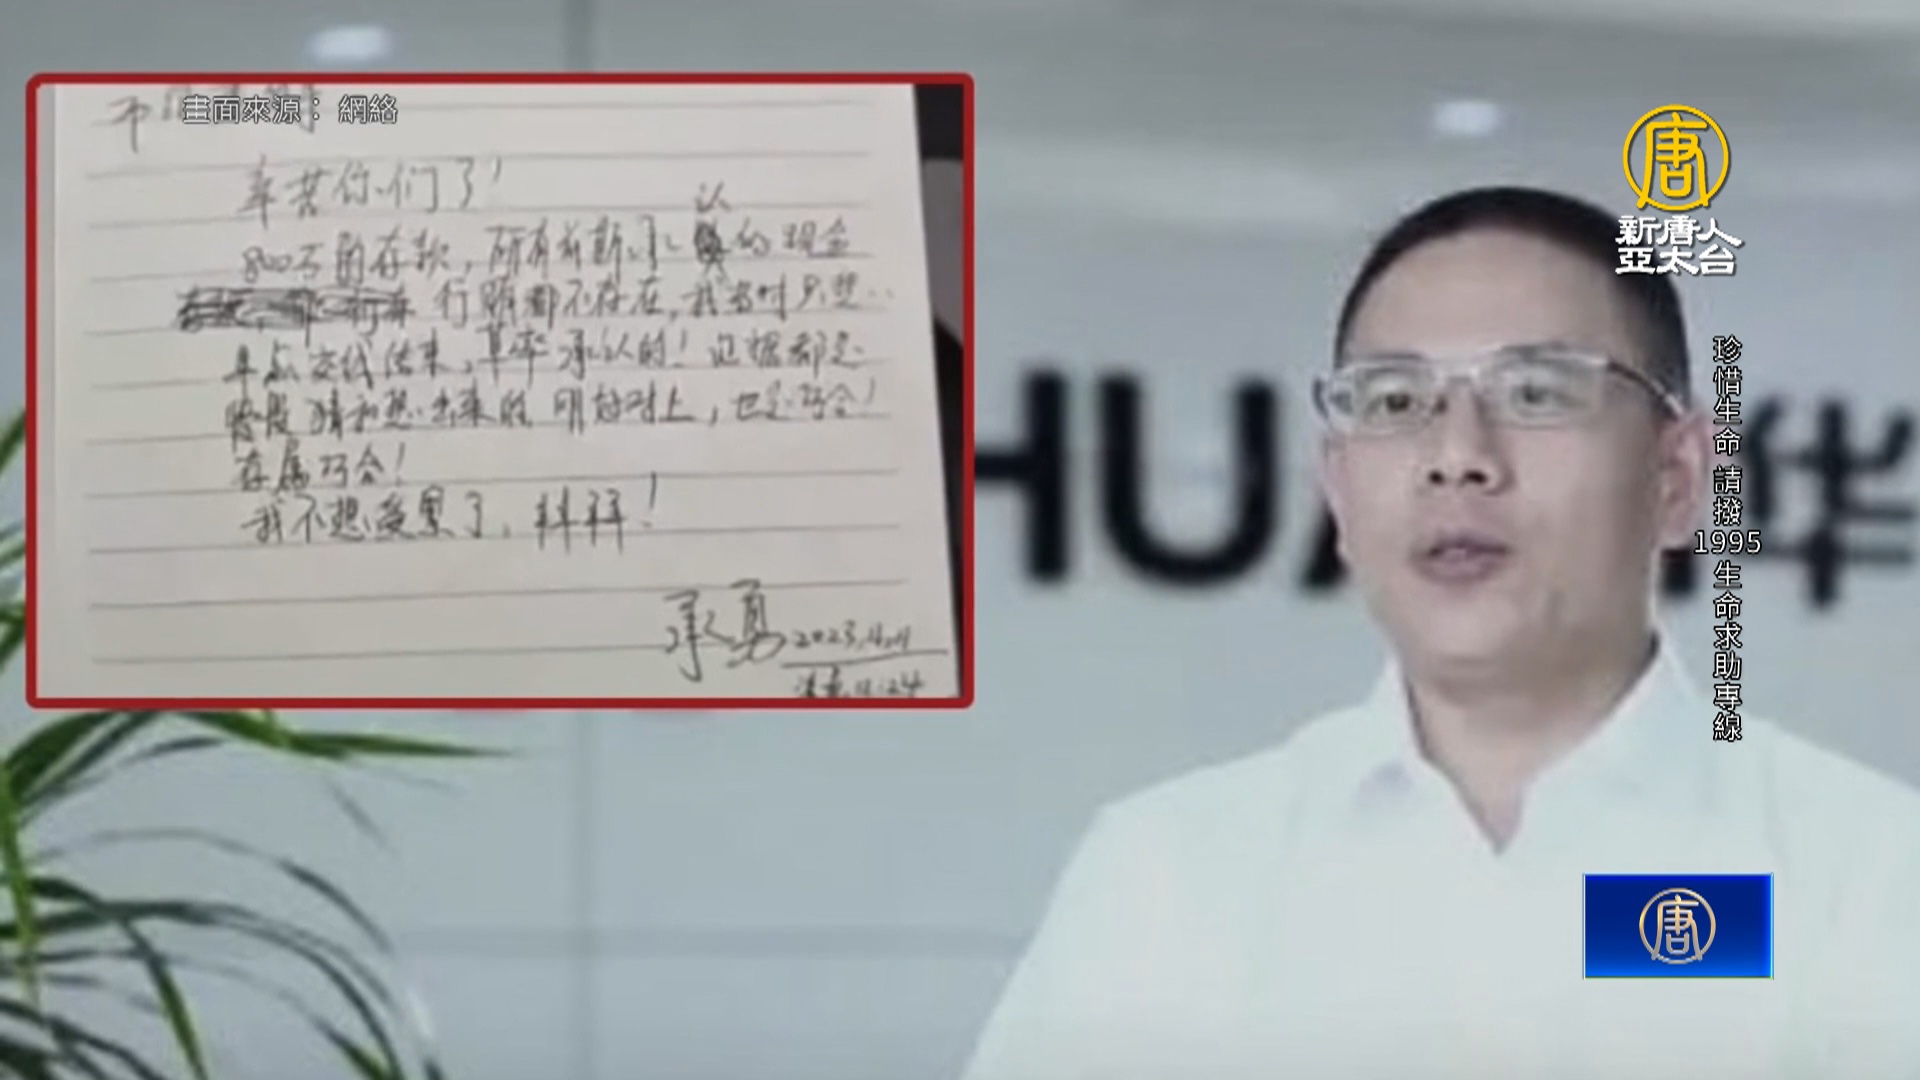 畫面來源：網絡
辛苦你们了！
认
800万的存款，所有前期承的现金
行贿都不存在，我当时只想
早点交线结束，草率承认的！证据都是
阶段猜和想出来的，明的对上，也是巧合！
存属巧合！
我不想受累了，拜拜！
承勇 2023.11.11
11:24
HUA 华
唐
新唐人
亞太台
珍惜生命 請撥1995生命求助專線
唐